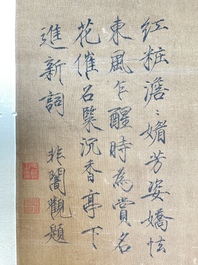 红粧澹〻媚芳姿嬌怯
東風乍醒時為賞名
花催召熨沉香亭下
進新詞 非闇觀題